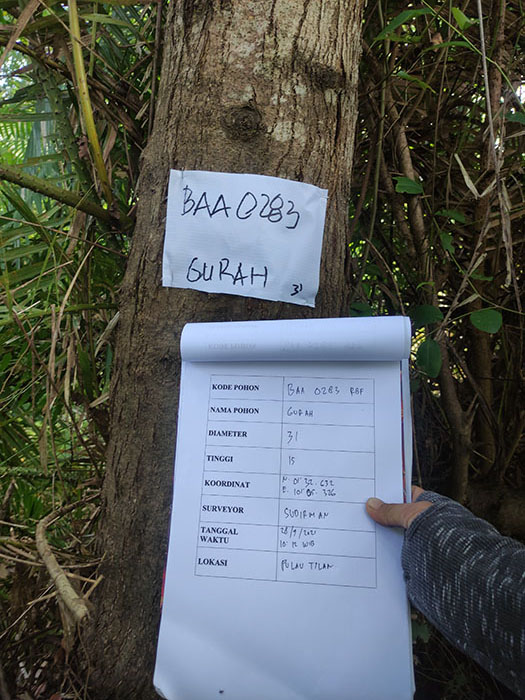 BAA 0283
GURAH
31
KODE POHON BAA 0283 RBF
NAMA POHON GURAH
DIAMETER 31
TINGGI 15
KOORDINAT
SURVEYOR SUDIRMAN
TANGGAL WAKTU 28/9/2021
10:12 WIB
LOKASI PULAU TILAN